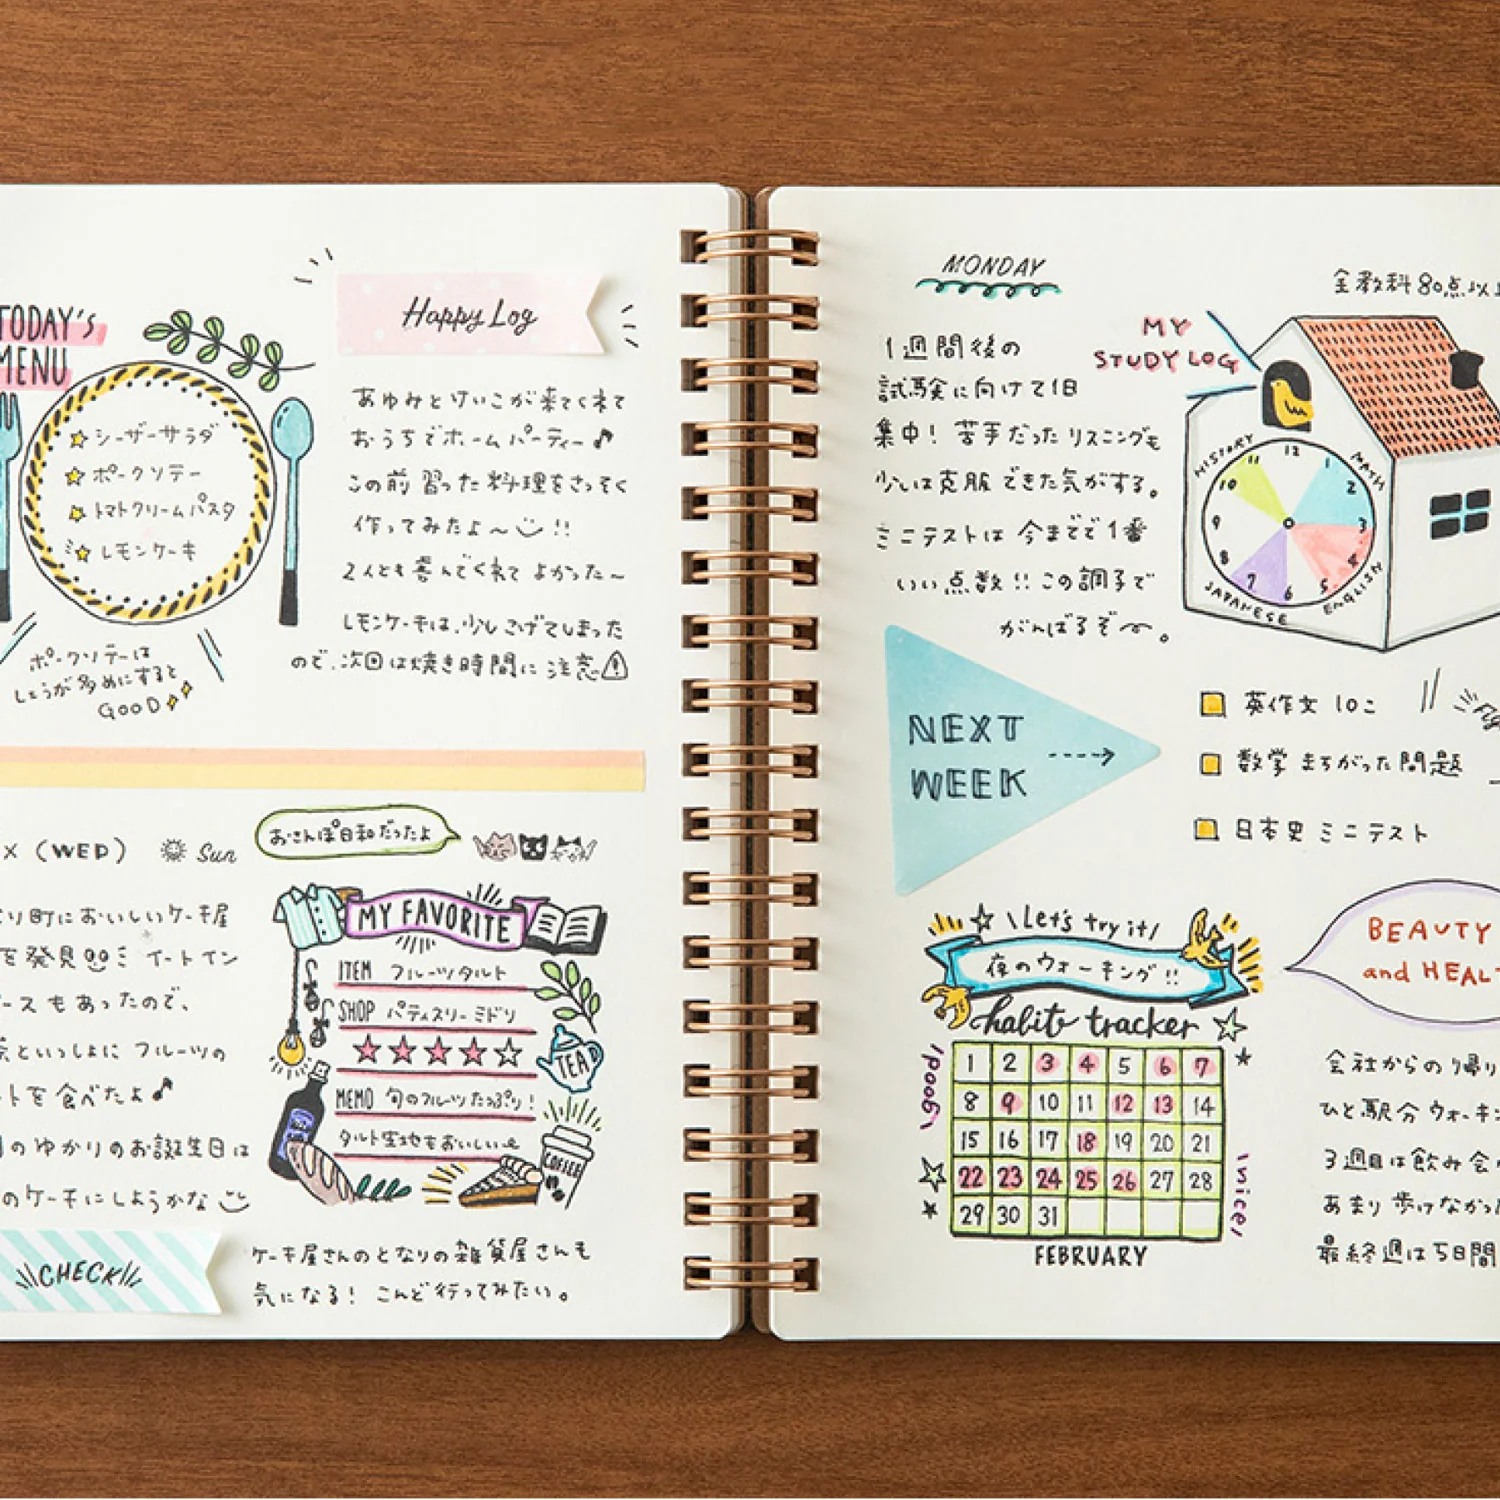 TODAY'S
MENU
シーザーサラダ
ポークソテー
トマトクリームパスタ
レモンケーキ
ポークソテーは
しょうが多めにすると
GOOD
Happy Log
あゆみとけいこが来てくれて
おうちでホームパーティー♪
この前習った料理をさっそく
作ってみたよ〜!!
2人とも喜んでくれてよかった〜
レモンケーキは、少しこげてしまった
ので、次回は焼き時間に注意
X (WED)
Sun
おさんぽ日和だったよ
町においしいケーキ屋
を発見 イートイン
ースもあったので、
といっしょにフルーツの
トを食べたよ♪
のゆかりのお誕生日は
のケーキにしようかな
MY FAVORITE
ITEM フルーツタルト
SHOP パティスリーミドリ
★★★★☆
TEA
MEMO 旬のフルーツたっぷり!
タルト生地もおいしい
COFFEE
CHECK
ケーキ屋さんのとなりの雑貨屋さんも
気になる! こんど行ってみたい。
MONDAY
1週間後の
試験に向けて1日
集中! 苦手だったリスニングも
少しは克服できた気がする。
ミニテストは今までで1番
いい点数!! この調子で
がんばるぞ〜。
全教科80点以
MY
STUDY LOG
HISTORY
MATH
ENGLISH
JAPANESE
12
1
2
3
4
5
6
7
8
9
10
11
NEXT
WEEK
英作文 10こ
数学 まちがった問題
日本史 ミニテスト
Let's try it
夜のウォーキング!!
habit tracker
good
1 2 3 4 5 6 7
8 9 10 11 12 13 14
15 16 17 18 19 20 21
22 23 24 25 26 27 28
29 30 31
nice
FEBRUARY
BEAUTY
and HEALT
会社からの帰り
ひと駅分ウォーキ
3週目は飲み会
あまり歩けなかっ
最終週は5日間